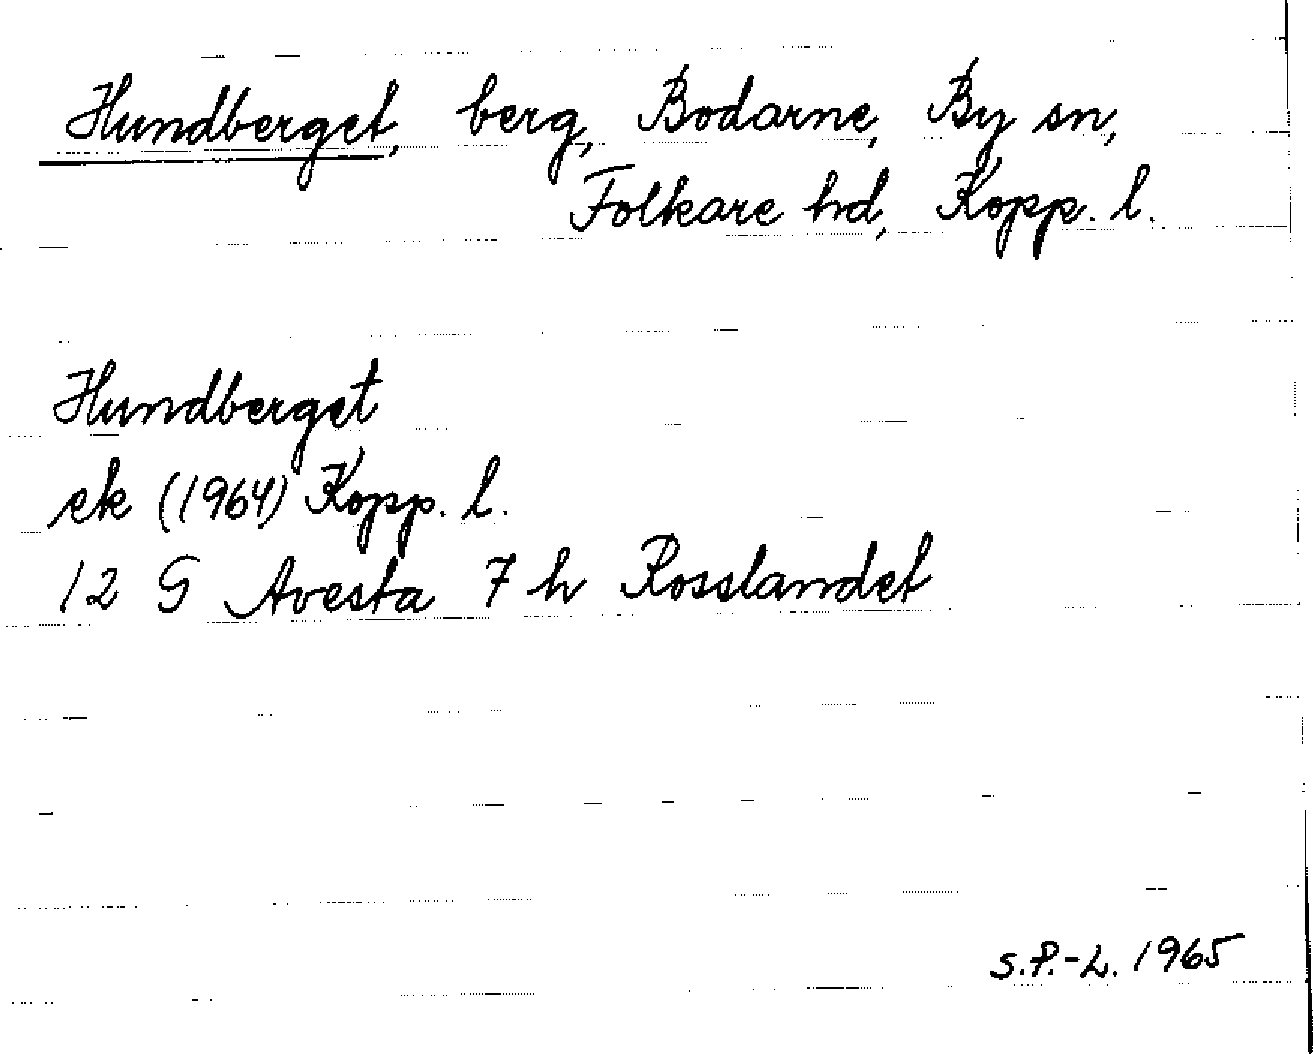 Hundberget, berg, Bodarne, By sn,
Folkare hd, Kopp. l.
Hundberget
ek (1964) Kopp. l.
12 G Avesta 7 h Rosslandet
S.P.-L. 1965